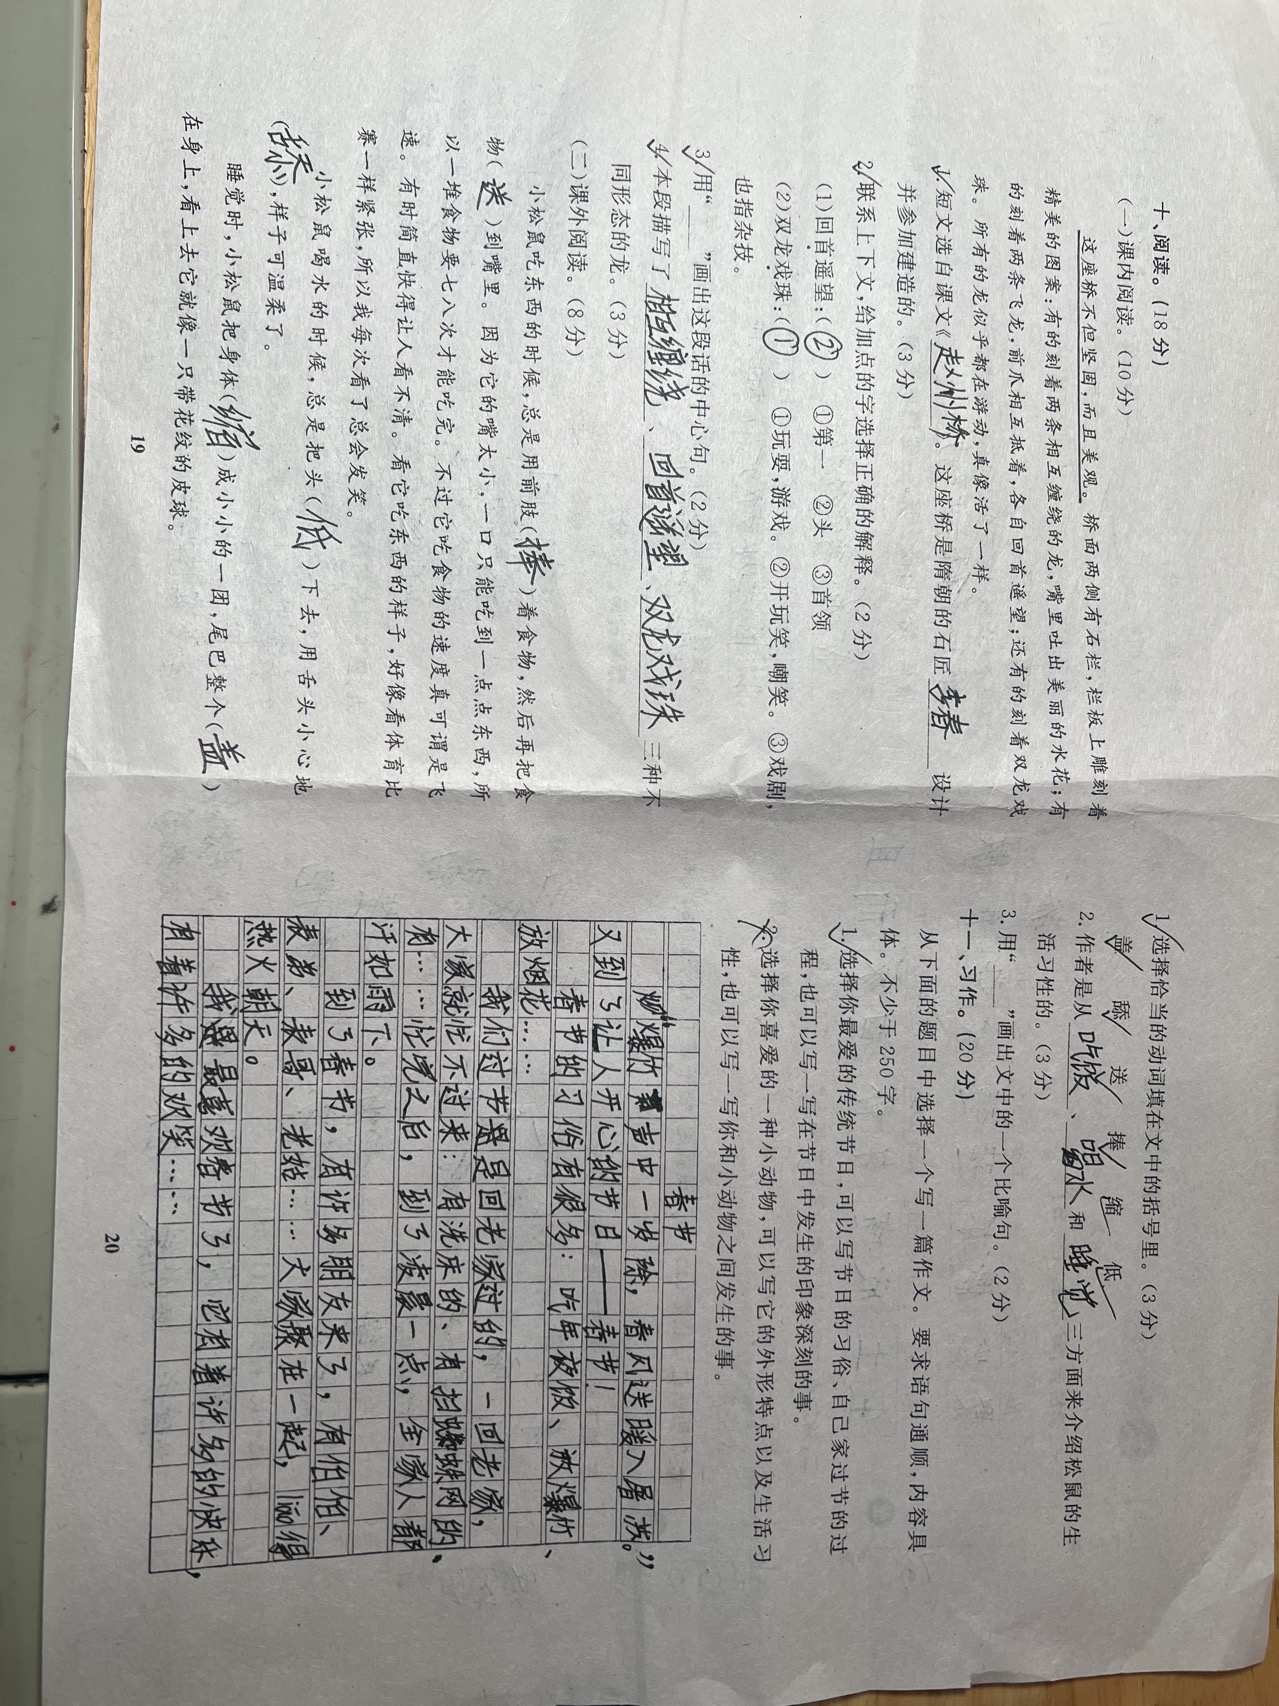 十、阅读。(18分)
(一)课内阅读。(10分)
这座桥不但坚固,而且美观。桥面两侧有石栏,栏板上雕刻着
精美的图案:有的刻着两条相互缠绕的龙,嘴里吐出美丽的水花;有
的刻着两条飞龙,前爪相互抵着,各自回首遥望;还有的刻着双龙戏
珠。所有的龙似乎都在游动,真像活了一样。
1.短文选自课文《赵州桥》。这座桥是隋朝的石匠 李春 设计
并参加建造的。(3分)
2.联系上下文,给加点的字选择正确的解释。(2分)
(1)回首遥望:(②) ①第一 ②头 ③首领
(2)双龙戏珠:(①) ①玩耍,游戏。②开玩笑,嘲笑。③戏剧,
也指杂技。
3.用“____”画出这段话的中心句。(2分)
4.本段描写了 相互缠绕 、 回首遥望 、双龙戏珠 三种不
同形态的龙。(3分)
(二)课外阅读。(8分)
小松鼠吃东西的时候,总是用前肢(捧)着食物,然后再把食
物(送)到嘴里。因为它的嘴太小,一口只能吃到一点点东西,所
以一堆食物要七八次才能吃完。不过它吃食物的速度真可谓是飞
速。有时简直快得让人看不清。看它吃东西的样子,好像看体育比
赛一样紧张,所以我每次看了总会发笑。
小松鼠喝水的时候,总是把头(低)下去,用舌头小心地
(舔),样子可温柔了。
睡觉时,小松鼠把身体(缩)成小小的一团,尾巴整个(盖)
在身上,看上去它就像一只带花纹的皮球。
19
1.选择恰当的动词填在文中的括号里。(3分)
盖 舔 送 捧 缩 低
2.作者是从 吃饭 、 喝水 和 睡觉 三方面来介绍松鼠的生
活习性的。(3分)
3.用“____”画出文中的一个比喻句。(2分)
十一、习作。(20分)
从下面的题目中选择一个写一篇作文。要求语句通顺,内容具
体。不少于250字。
1.选择你最爱的传统节日,可以写节日的习俗、自己家过节的过
程,也可以写一写在节日中发生的印象深刻的事。
2.选择你喜爱的一种小动物,可以写它的外形特点以及生活习
性,也可以写一写你和小动物之间发生的事。
春节
“爆竹声中一岁除,春风送暖入屠苏。”
又到了让人开心的节日——春节!
春节的习俗有很多:吃年夜饭、放爆竹、
放烟花……
我们过节是回老家过的,一回老家,
大家就忙不过来:有洗床的、有扫蜘蛛网的、
有……忙完之后,到了凌晨一点,全家人都
汗如雨下。
到了春节,有许多朋友来了,有伯伯、
表弟、表哥、老姑……大家聚在一起,闹得
热火朝天。
我最喜欢春节了,它有着许多的快乐,
有着许多的欢笑……
20